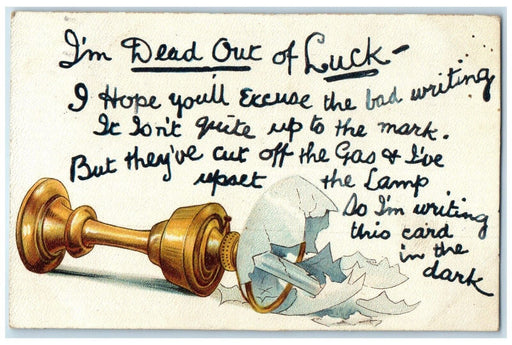 I'm Dead Out of Luck -
I Hope you'll Excuse the bad writing
It Isn't quite up to the mark.
But they've cut off the Gas & I've
upset the Lamp
So I'm writing
this card
in the
dark